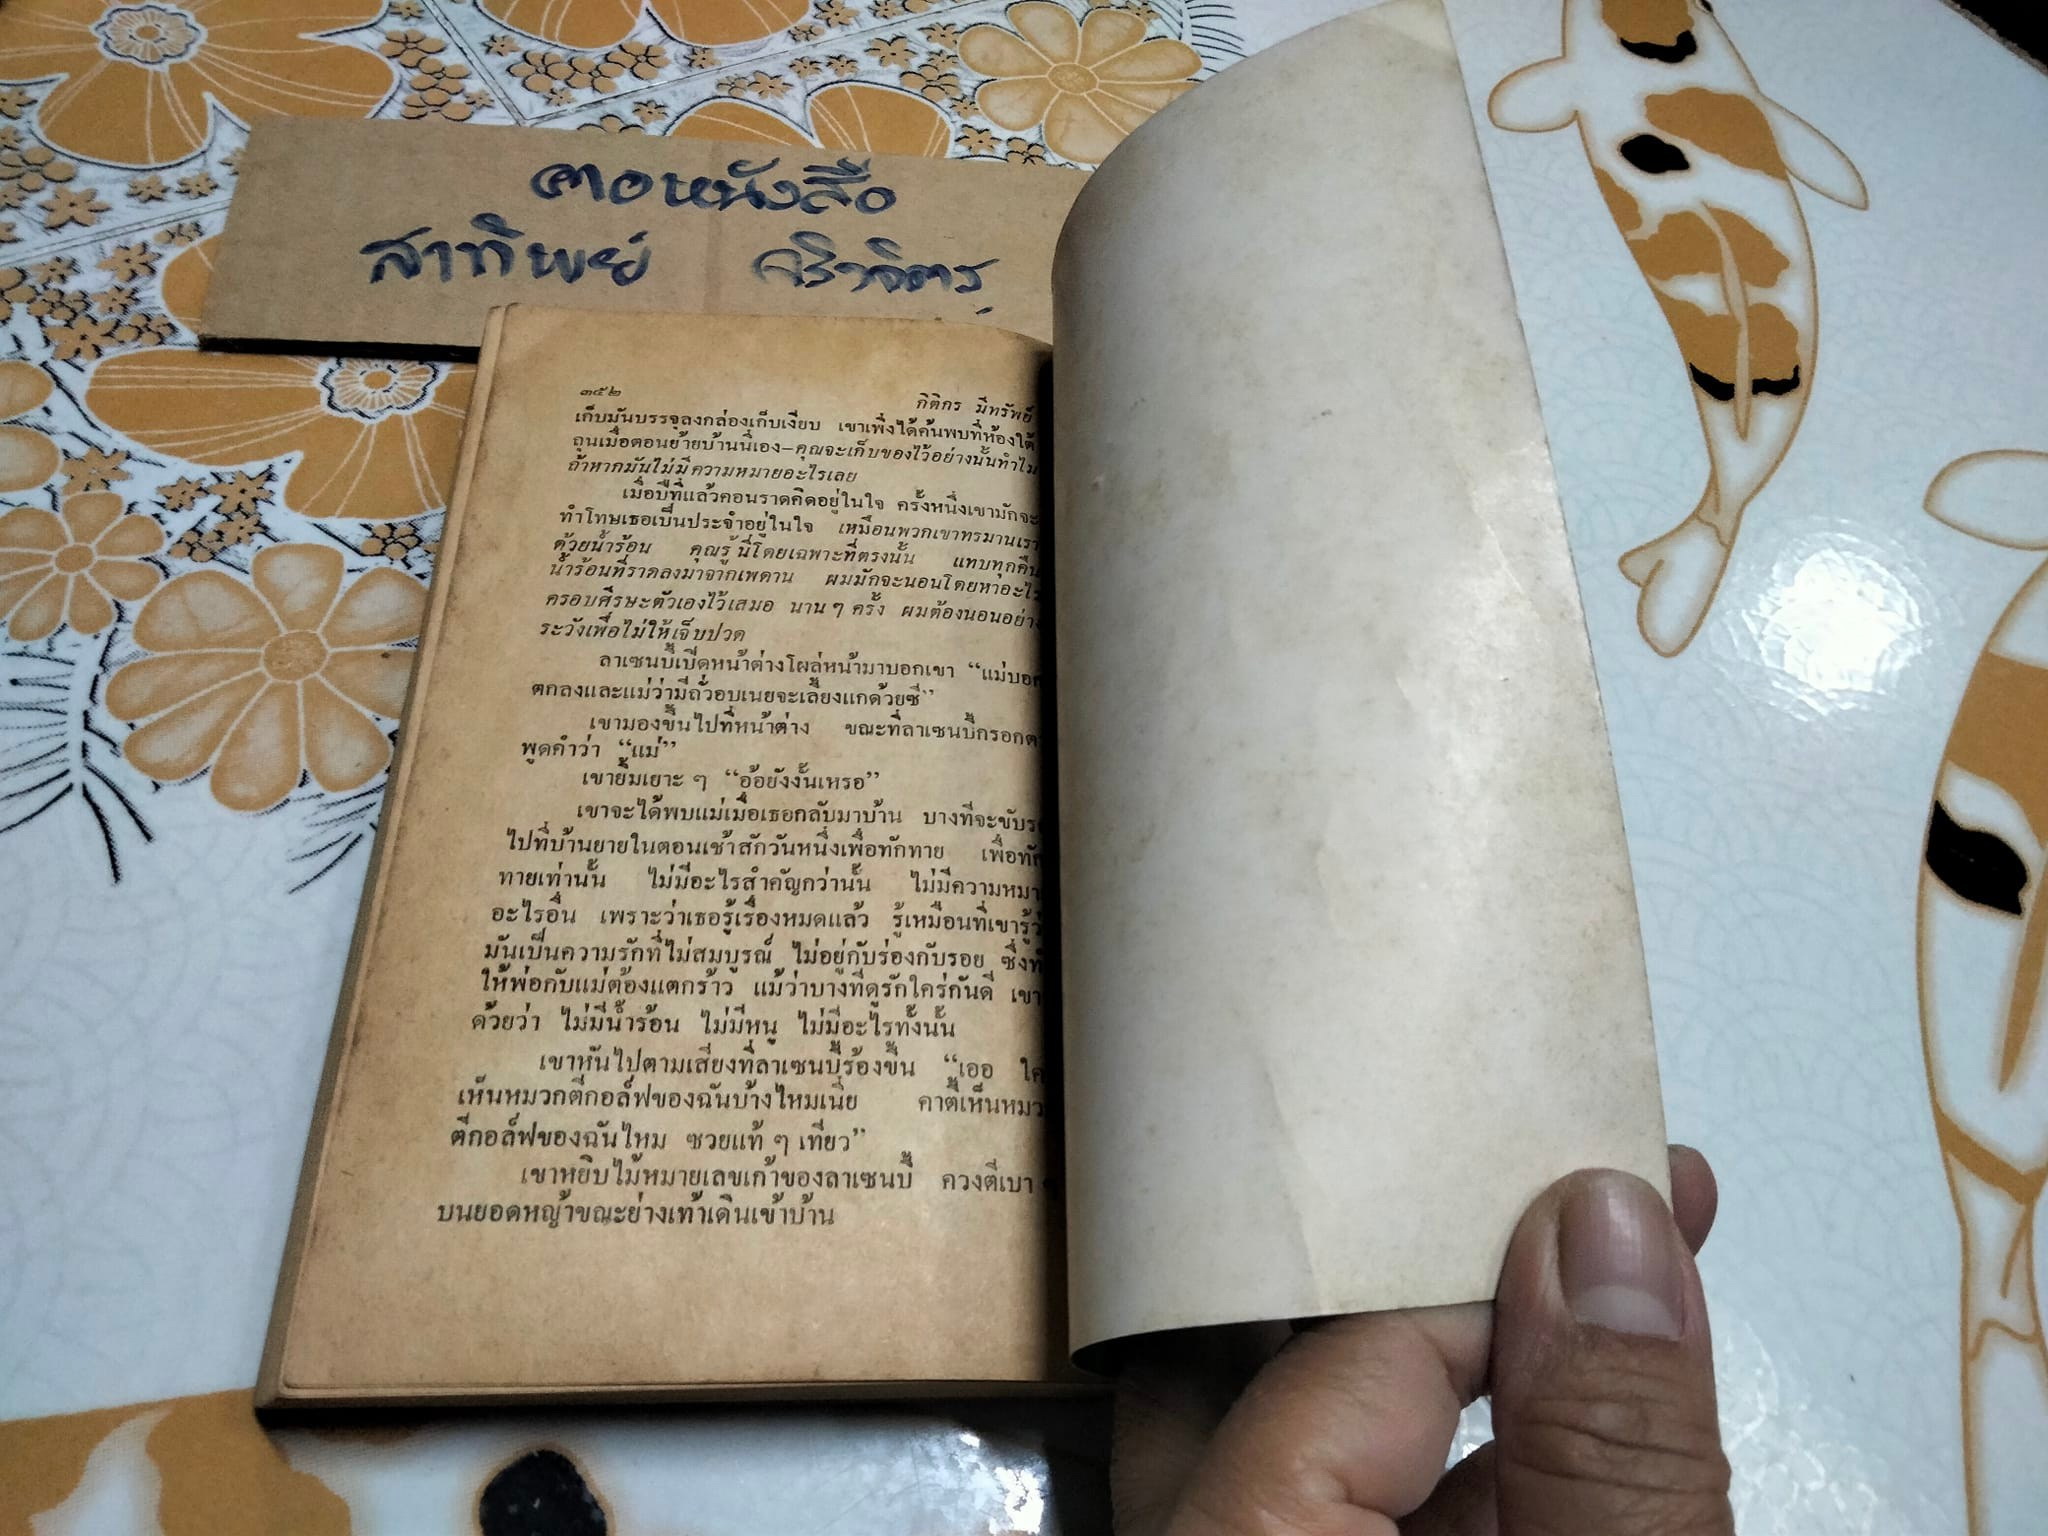 คอหนังสือ
สาทิพย์
๓๕๒
กิติกร มีทรัพย์
เก็บมันบรรจุลงกล่องเก็บเงียบ เขาเพิ่งได้ค้นพบที่ห้องใต้
ถุนเมื่อตอนย้ายบ้านนี่เอง–คุณจะเก็บของไว้อย่างนั้นทำไม
ถ้าหากมันไม่มีความหมายอะไรเลย
เมื่อปีที่แล้วคอนราดคิดอยู่ในใจ ครั้งหนึ่งเขามักจะ
ทำโทษเธอเป็นประจำอยู่ในใจ เหมือนพวกเขาทรมานเรา
ด้วยน้ำร้อน คุณรู้นี่โดยเฉพาะที่ตรงนั้น แทบทุกคืน
น้ำร้อนที่ราดลงมาจากเพดาน ผมมักจะนอนโดยหาอะไร
ครอบศีรษะตัวเองไว้เสมอ นาน ๆ ครั้ง ผมต้องนอนอย่าง
ระวังเพื่อไม่ให้เจ็บปวด
ลาเซนบี้เปิดหน้าต่างโผล่หน้ามาบอกเขา “แม่บอก
ตกลงและแม่ว่ามีถั่วอบเนยจะเลี้ยงแกด้วยซี”
เขามองขึ้นไปที่หน้าต่าง ขณะที่ลาเซนบี้กรอกตา
พูดคำว่า “แม่”
เขายิ้มเยาะ ๆ “อ้อยังงั้นเหรอ”
เขาจะได้พบแม่เมื่อเธอกลับมาบ้าน บางทีจะขับรถ
ไปที่บ้านยายในตอนเช้าสักวันหนึ่งเพื่อทักทาย เพื่อทัก
ทายเท่านั้น ไม่มีอะไรสำคัญกว่านั้น ไม่มีความหมาย
อะไรอื่น เพราะว่าเธอรู้เรื่องหมดแล้ว รู้เหมือนที่เขารู้ว่า
มันเป็นความรักที่ไม่สมบูรณ์ ไม่อยู่กับร่องกับรอย ซึ่ง
ให้พ่อกับแม่ต้องแตกร้าว แม้ว่าบางทีดูรักใคร่กันดี เขา
ด้วยว่า ไม่มีน้ำร้อน ไม่มีหนู ไม่มีอะไรทั้งนั้น
เขาหันไปตามเสียงที่ลาเซนบี้ร้องขึ้น “เออ
เห็นหมวกตีกอล์ฟของฉันบ้างไหมเนี่ย คาตี้เห็นหมวก
ตีกอล์ฟของฉันไหม ซวยแท้ ๆ เทียว”
เขาหยิบไม้หมายเลขเก้าของลาเซนบี้ ควงตีเบา ๆ
บนยอดหญ้าขณะย่างเท้าเดินเข้าบ้าน